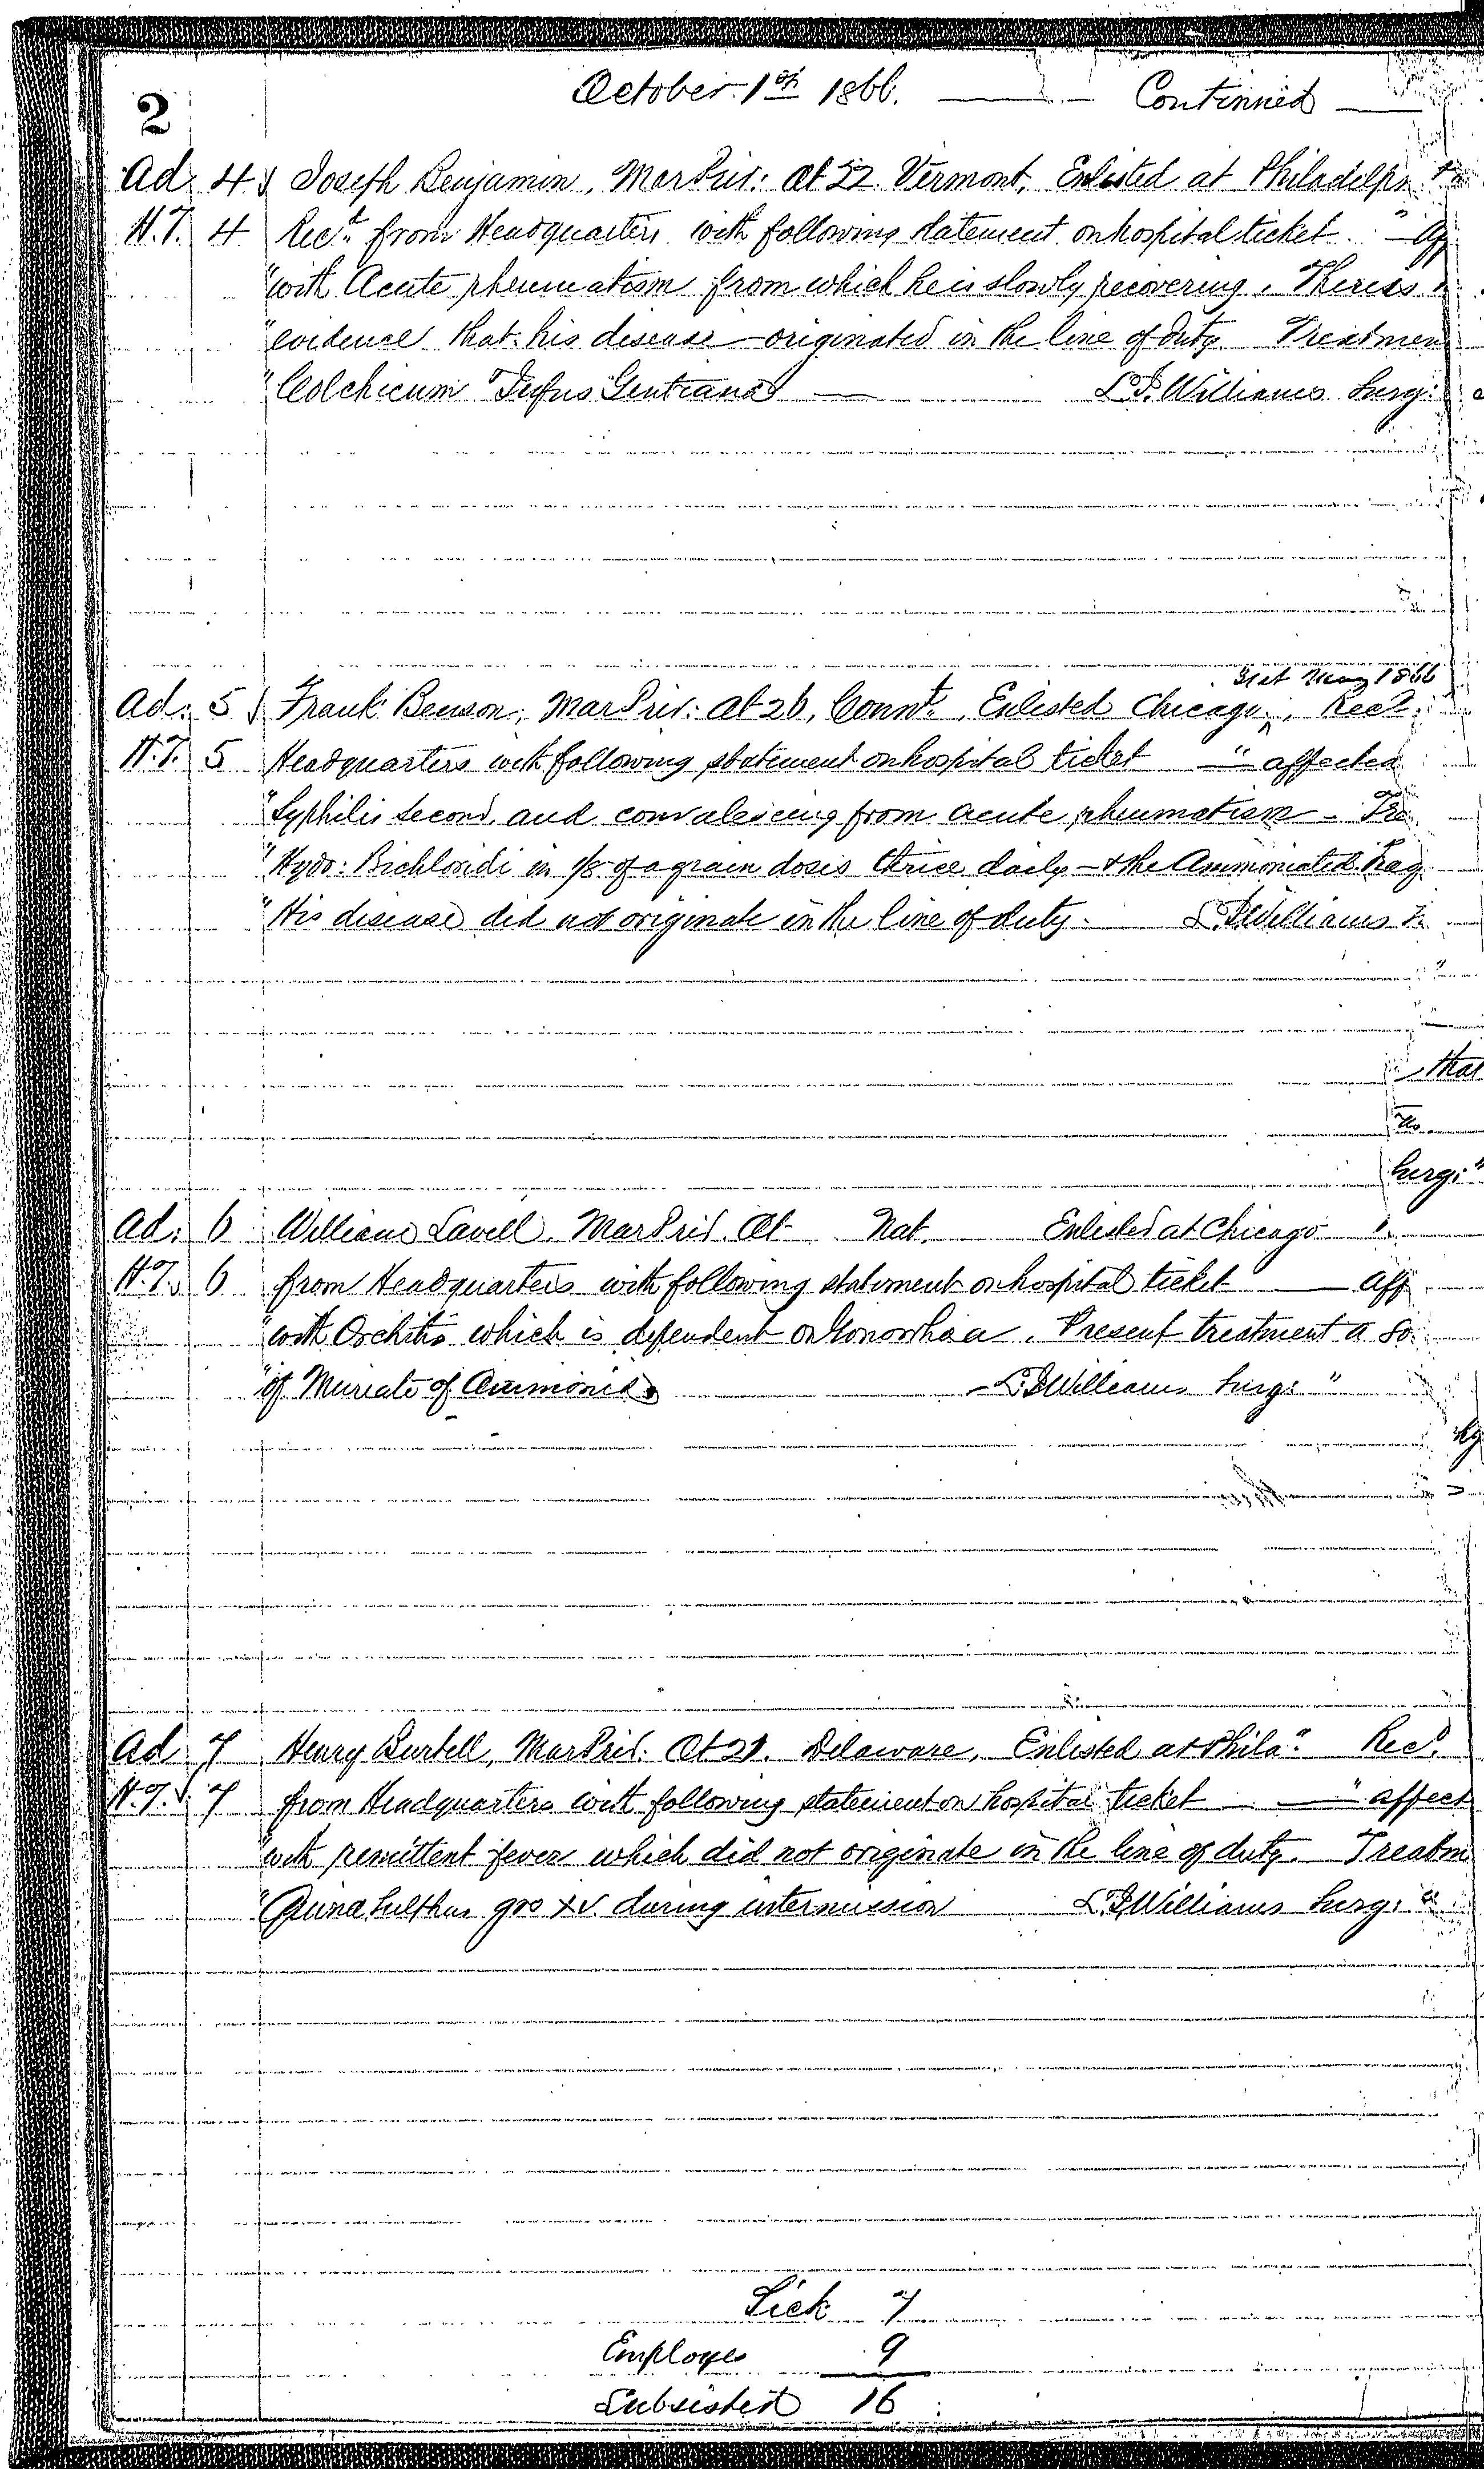 2
October 1st 1866. Continued
Ad. 4 Joseph Benjamin, Mar Priv: Æt 22 Vermont, Enlisted at
H.T. 4 Recd. from Headquarters with following statement on hospital ticket "
"with Acute rheumatism from which he is slowly recovering. There is
"evidence that his disease originated in the line of duty. Treatmen
"Colchicum Infus Gentianæ L. J. Williams Surg:
31st May 1866
Ad: 5 Frank Benson, Mar Priv: Æt 26, Connt., Enlisted Chicago ‸. Recd.
H.T. 5 Headquarters with following statement on hospital ticket " affected
"Syphilis second, and convalescing from acute rheumatism -
"Hydr: Bichloridi in 1/8 of a grain doses thrice daily - & the Ammoniated
"His disease did not originate in the line of duty. L. J. Williams
that
Surg: "
Ad: 6 William Lavell. Mar Priv. Æt Nat. Enlisted at Chicago
H.T. 6 from Headquarters with following statement on hospital ticket aff
"with Orchitis which is dependent on Gonorrhœa. Present treatment a So
"of Muriate of Ammonia. L. J. Williams Surg: "
Ad 7 Henry Burtell, Mar Priv. Æt 21. Delaware, Enlisted at Phila. Recd.
H.T. 7 from Headquarters with following statement on hospital ticket " affect
"with remittent fever which did not originate in the line of duty. Treatm
"Quina Sulphas grs xv during intermission L. J. Williams Surg: "
Sick 7
Employes 9
Subsisted 16